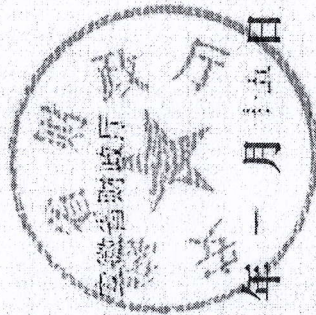 安徽省财政厅
安徽省财政厅
年一月 日